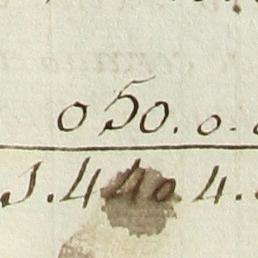 050.0.
1.4404.